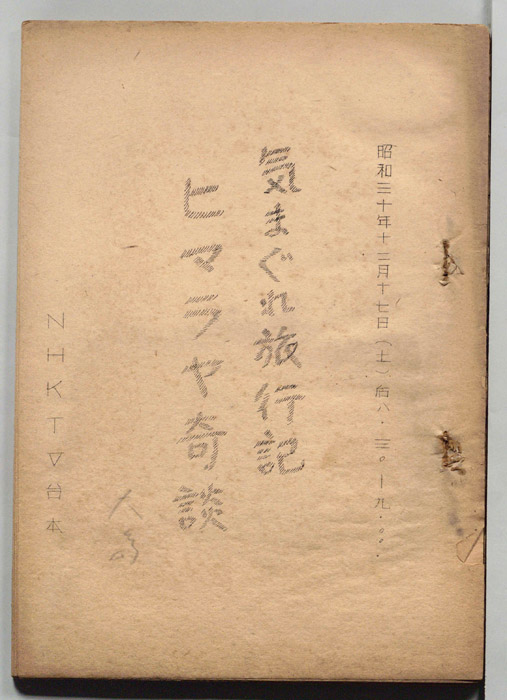 昭和三十年十二月十七日(土)后八・三〇―九・〇〇・
気まぐれ旅行記
ヒマラヤ奇談
NHKTV台本